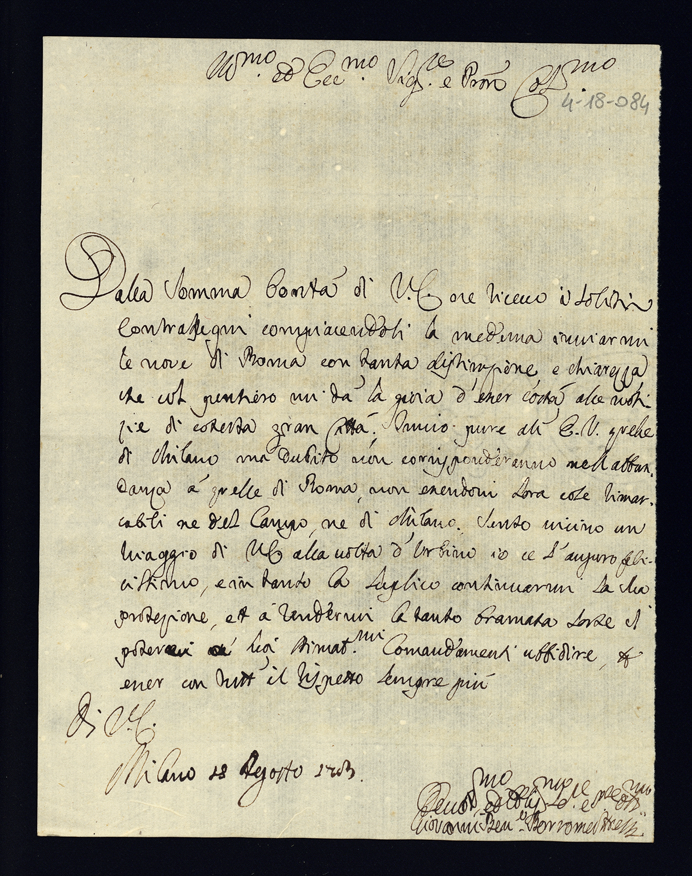 Ill.mo ed Ecc.mo Sig.re e Pron Col.mo
4-18-084
Dalla somma bontà di V.E. ne riceuo i soliti
contrasegni compiacendosi la medema inuiarmi
le noue di Roma con tanta distinzione e chiarezza
che col pensiero mi dà la gioia d'esser costà alle noti
zie di cotesta gran Città. Inuio pure all' E.V. quelle
di Milano ma dubito non corrisponderanno nell'abbon
danza à quelle di Roma, non essendoui hora cose rimar
cabili ne del Campo, ne di Milano. Sento uicino un
uiaggio di V.E. alla uolta d'Urbino io ce l'auguro feli-
cissimo, e in tanto la suplico continuarmi la sua
protezione, et à rendermi la tanto bramata sorte di
poter i suoi stimat.mi Comandamenti ubbidire, &
esser con tutt' il rispetto sempre più
Di V.E.
Milano 18 Agosto 1703.
Deuot.mo ed Obl.mo Se.re
Giovanni Ben.o Borromeo